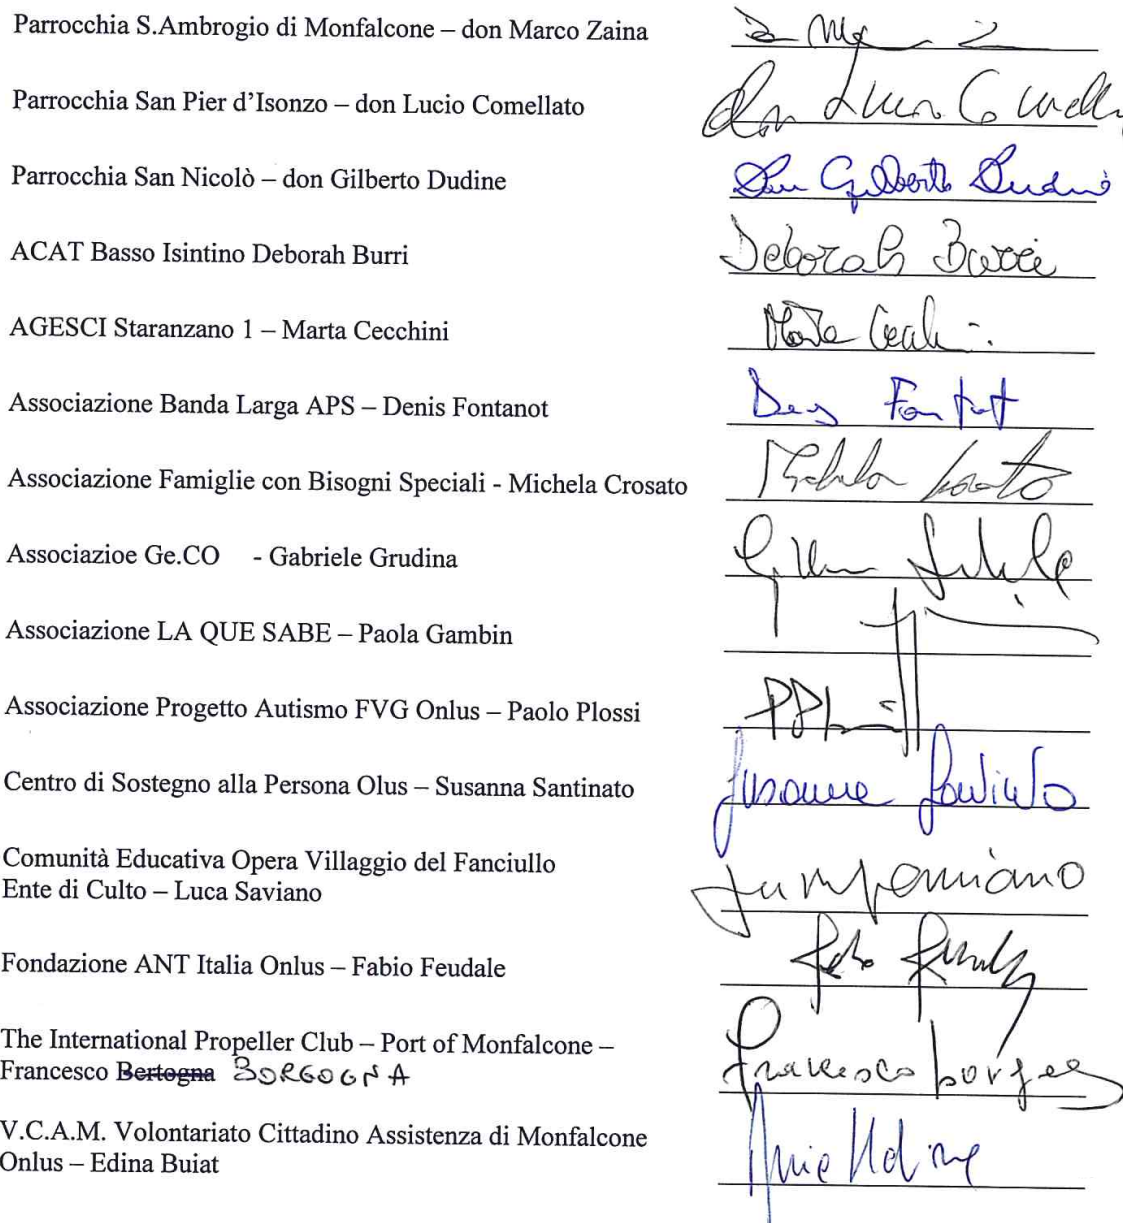 Parrocchia S.Ambrogio di Monfalcone – don Marco Zaina
Parrocchia San Pier d'Isonzo – don Lucio Comellato don Lucio Comella
Parrocchia San Nicolò – don Gilberto Dudine Don Gilberto Dudine
ACAT Basso Isintino Deborah Burri Deborah Burri
AGESCI Staranzano 1 – Marta Cecchini Marta
Associazione Banda Larga APS – Denis Fontanot
Associazione Famiglie con Bisogni Speciali - Michela Crosato Michela Crosato
Associazioe Ge.CO - Gabriele Grudina
Associazione LA QUE SABE – Paola Gambin
Associazione Progetto Autismo FVG Onlus – Paolo Plossi
Centro di Sostegno alla Persona Olus – Susanna Santinato Susanna Santinato
Comunità Educativa Opera Villaggio del Fanciullo
Ente di Culto – Luca Saviano
Fondazione ANT Italia Onlus – Fabio Feudale Fabio
The International Propeller Club – Port of Monfalcone –
Francesco Bertogna BORGOGNA Francesco
V.C.A.M. Volontariato Cittadino Assistenza di Monfalcone
Onlus – Edina Buiat